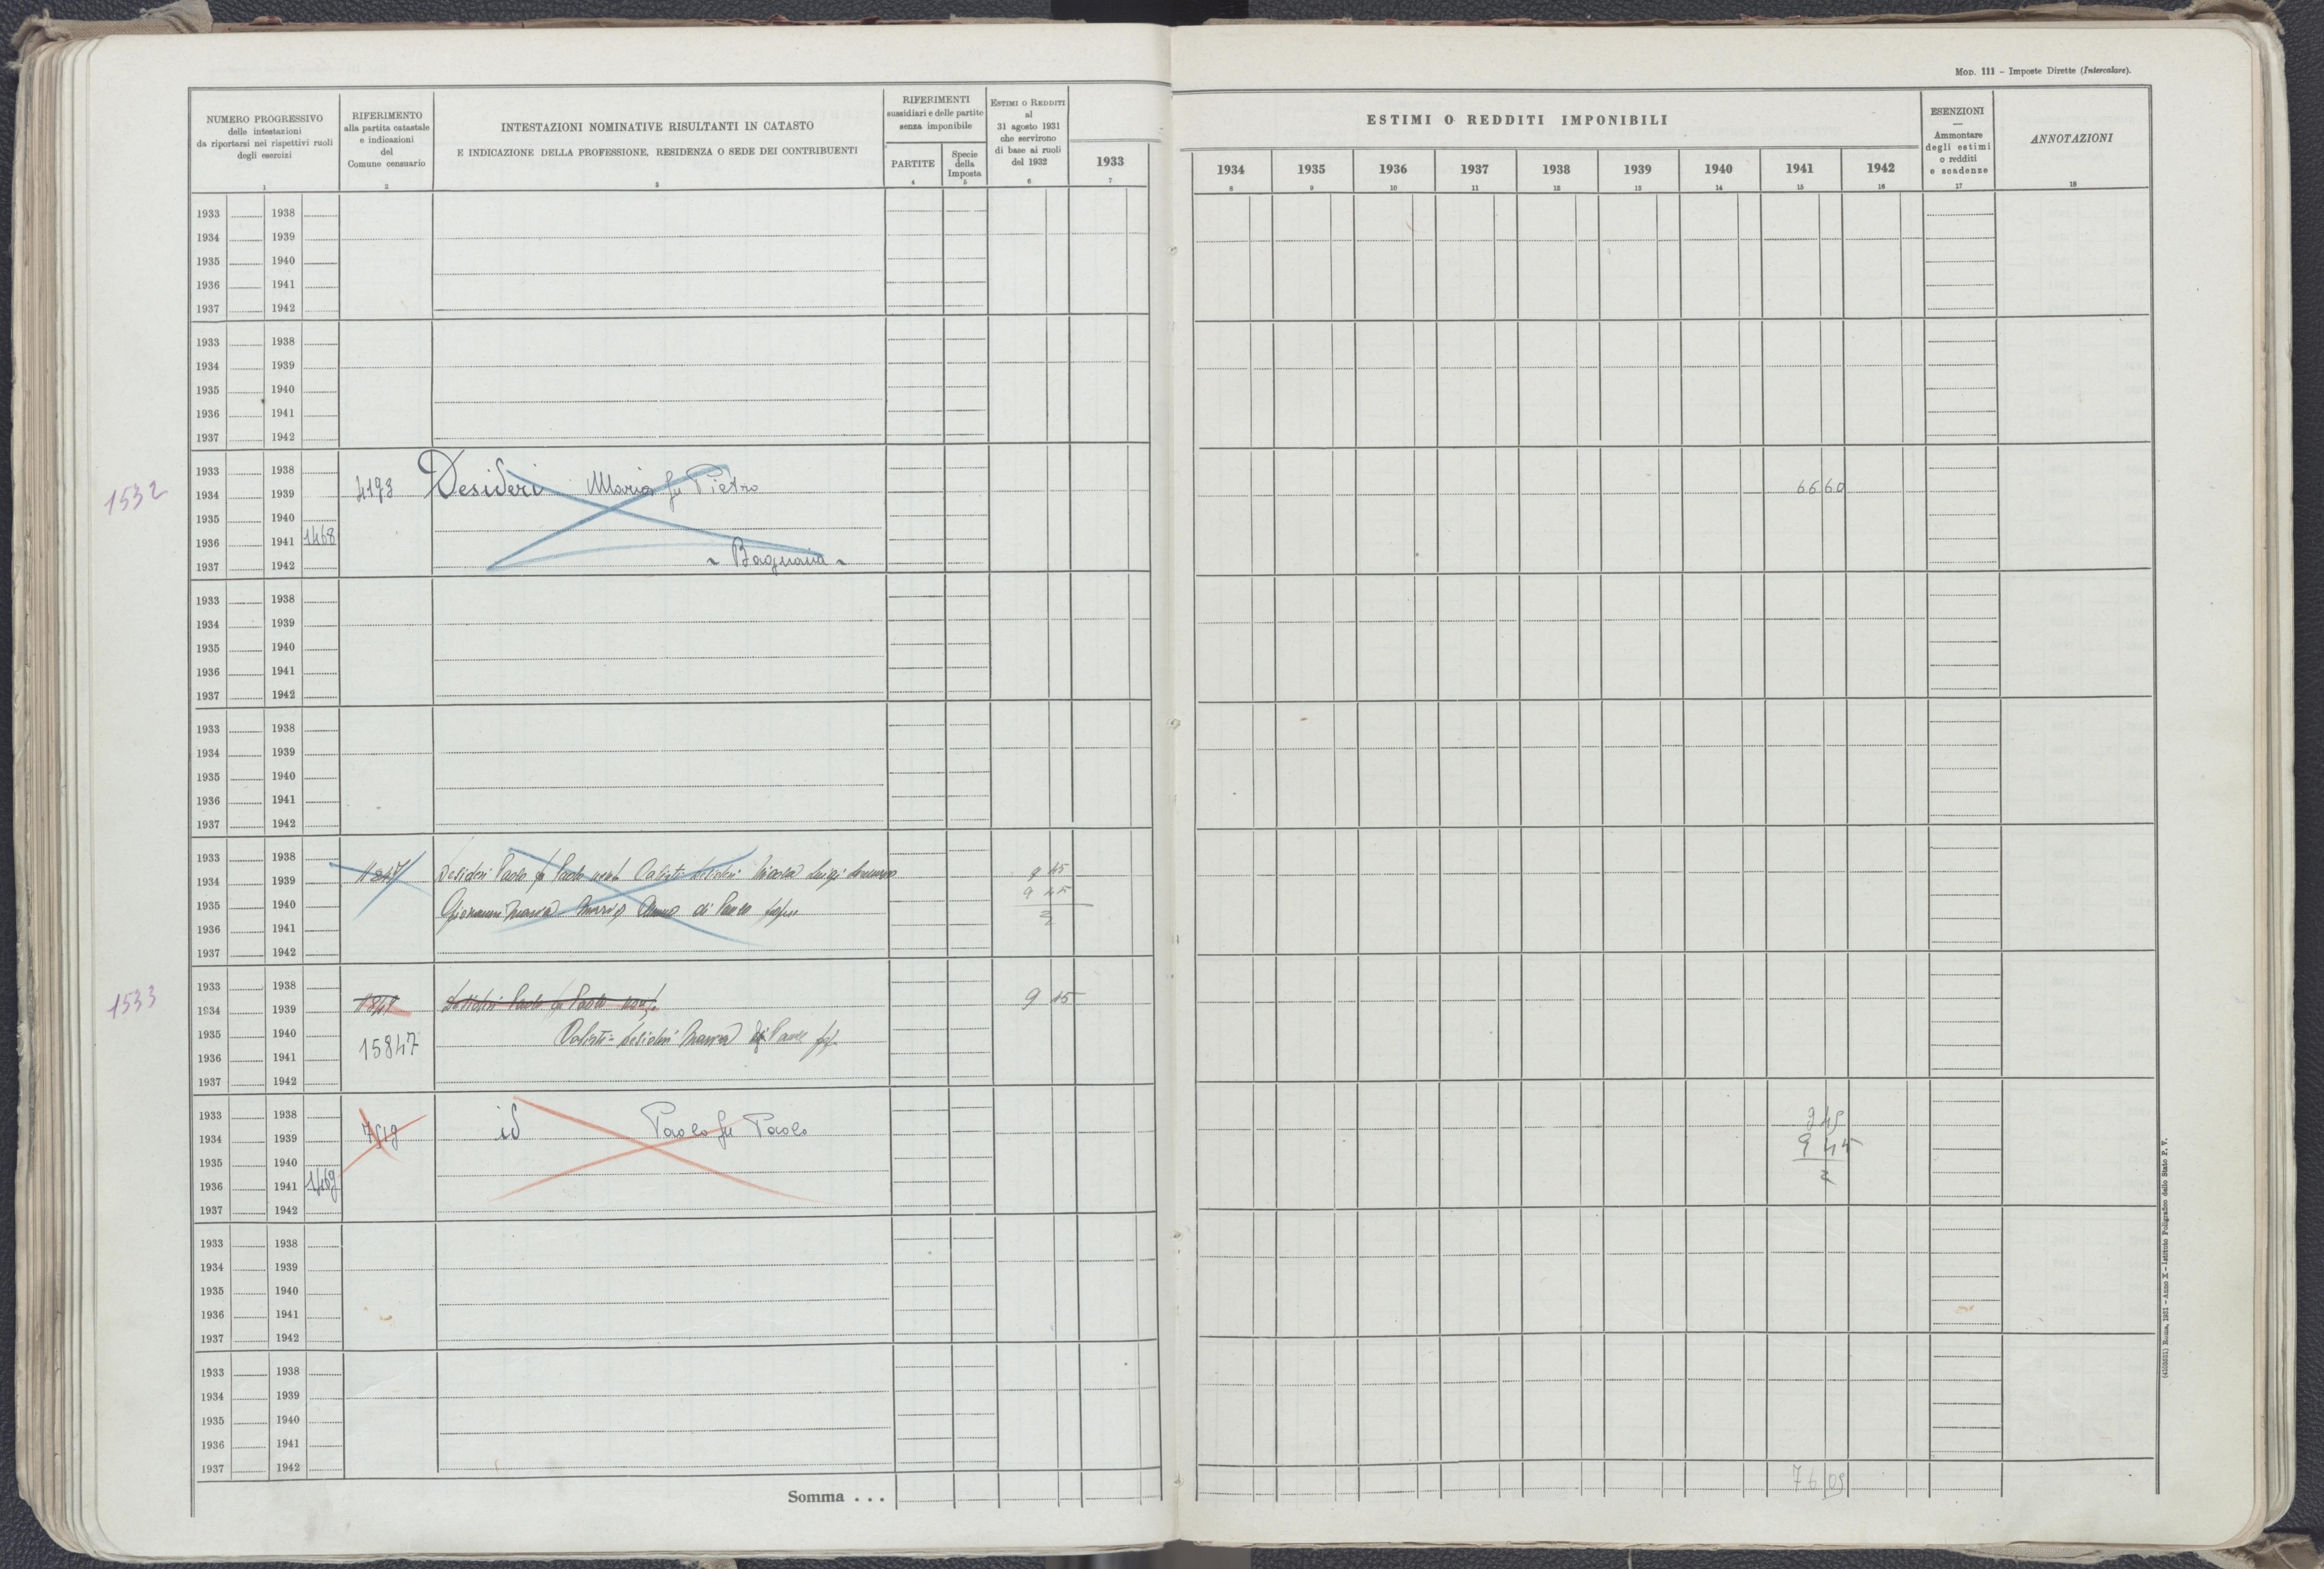 MOD. 111 – Imposte Dirette (Intercalare).
NUMERO PROGRESSIVO
delle intestazioni
da riportarsi nei rispettivi ruoli
degli esercizi
1
RIFERIMENTO
alla partita catastale
e indicazioni
del
Comune censuario
2
INTESTAZIONI NOMINATIVE RISULTANTI IN CATASTO
E INDICAZIONE DELLA PROFESSIONE, RESIDENZA O SEDE DEI CONTRIBUENTI
3
RIFERIMENTI
sussidiari e delle partite
senza imponibile
PARTITE
4
Specie
della
Imposta
5
ESTIMI O REDDITI
al
31 agosto 1931
che servirono
di base ai ruoli
del 1932
6
ESTIMI O REDDITI IMPONIBILI
1933
7
1934
8
1935
9
1936
10
1937
11
1938
12
1939
13
1940
14
1941
15
1942
16
ESENZIONI
—
Ammontare
degli estimi
o redditi
e scadenze
17
ANNOTAZIONI
18
1933 1938
1934 1939
1935 1940
1936 1941
1937 1942
1933 1938
1934 1939
1935 1940
1936 1941
1937 1942
1532
1933 1938
1934 1939 4193 Desideri Maria fu Pietro 66 60
1935 1940
1936 1941 1468
1937 1942 - Bagnaia -
1933 1938
1934 1939
1935 1940
1936 1941
1937 1942
1933 1938
1934 1939
1935 1940
1936 1941
1937 1942
1933 1938
1934 1939 Desideri Paolo fu Paolo Desideri Luigi 9 45
1935 1940 Giovanni Maria di Paolo 9 45
1936 1941 2
1937 1942
1533
1933 1938
1934 1939 Desideri Paolo fu Paolo 9 45
1935 1940 15847 Desideri Paolo
1936 1941
1937 1942
1933 1938 9 45
1934 1939 7519 id Paolo fu Paolo 9 45
1935 1940 2
1936 1941 1469
1937 1942
1933 1938
1934 1939
1935 1940
1936 1941
1937 1942
1933 1938
1934 1939
1935 1940
1936 1941
1937 1942
Somma . . . 76 05
(4103531) Roma, 1931 – Anno X – Istituto Poligrafico dello Stato P. V.